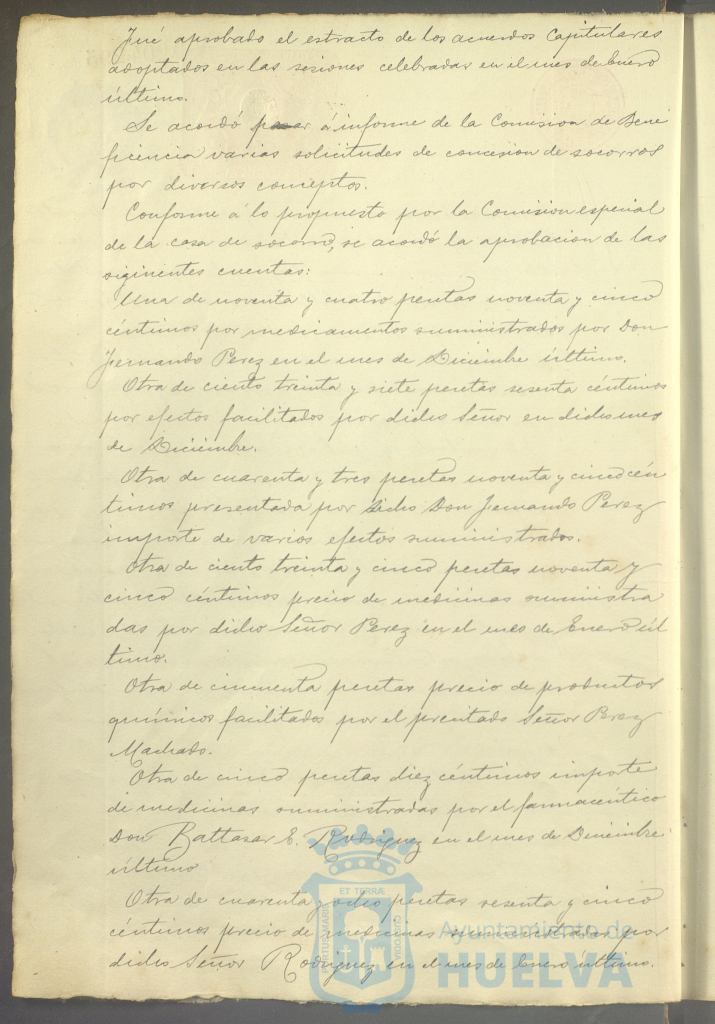 Fué aprobado el extracto de los acuerdos Capitulares
adoptados en las sesiones celebradas en el mes de Enero
último.
Se acordó pasar á informe de la Comision de Bene
ficencia varias solicitudes de concesion de socorros
por diversos conceptos.
Conforme á lo propuesto por la Comision especial
de la casa de socorro, se acordó la aprobacion de las
siguientes cuentas:
Una de noventa y cuatro pesetas noventa y cinco
céntimos por medicamentos suministrados por Don
Fernando Perez en el mes de Diciembre último.
Otra de ciento treinta y siete pesetas sesenta céntimos
por efectos facilitados por dicho Señor en dicho mes
de Diciembre.
Otra de cuarenta y tres pesetas noventa y cinco cén
timos presentada por dicho Don Fernando Perez
importe de varios efectos suministrados.
Otra de ciento treinta y cinco pesetas noventa y
cinco céntimos precio de medicinas suministra
das por dicho Señor Perez en el mes de Enero úl
timo.
Otra de cincuenta pesetas precio de productos
químicos facilitados por el precitado Señor Perez
Machado.
Otra de cinco pesetas diez céntimos importe
de medicinas suministradas por el farmacéutico
Don Baltasar E. Rodriguez en el mes de Diciembre
último
Otra de cuarenta y ocho pesetas sesenta y cinco
céntimos precio de medicinas suministradas por
dicho Señor Rodriguez en el mes de Enero último.
ET TERRÆ
PORTUS MARIS
CUSTODIA
Ayuntamiento de
HUELVA